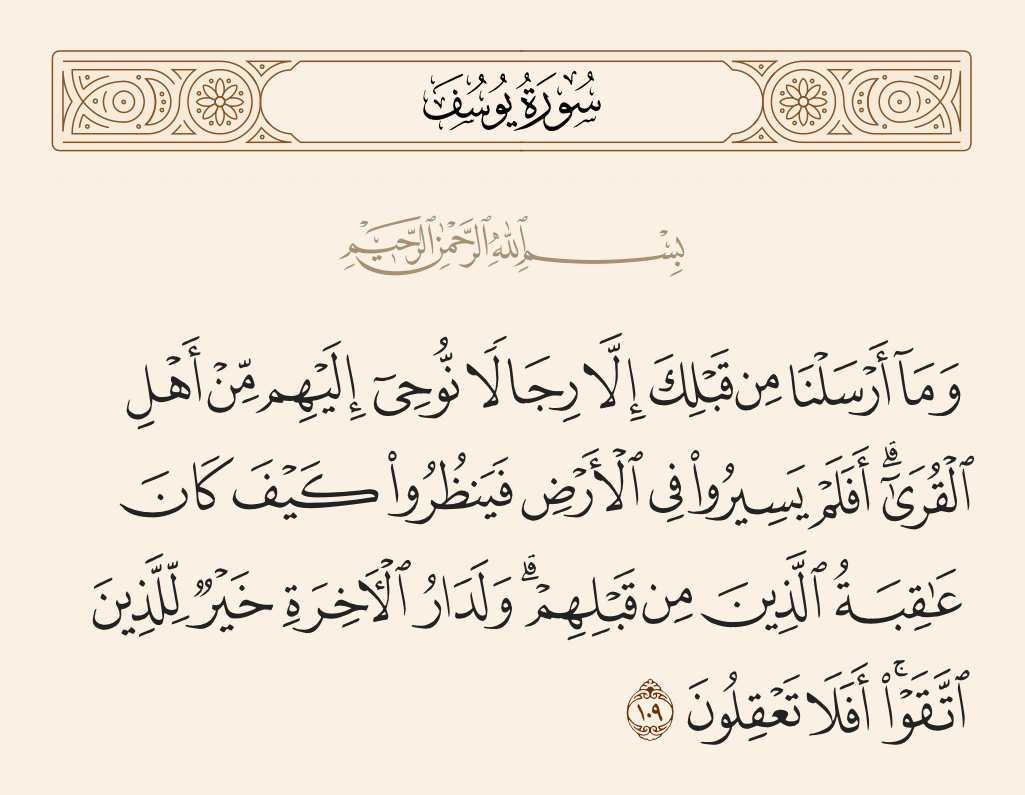 سُورَةُ يُوسُفَ
بِسْمِ ٱللَّهِ ٱلرَّحْمَٰنِ ٱلرَّحِيمِ
وَمَآ أَرْسَلْنَا مِن قَبْلِكَ إِلَّا رِجَالًا نُّوحِىٓ إِلَيْهِم مِّنْ أَهْلِ
ٱلْقُرَىٰٓ ۗ أَفَلَمْ يَسِيرُوا۟ فِى ٱلْأَرْضِ فَيَنظُرُوا۟ كَيْفَ كَانَ
عَـٰقِبَةُ ٱلَّذِينَ مِن قَبْلِهِمْ ۗ وَلَدَارُ ٱلْـَٔاخِرَةِ خَيْرٌ لِّلَّذِينَ
ٱتَّقَوْا۟ ۚ أَفَلَا تَعْقِلُونَ ١٠٩